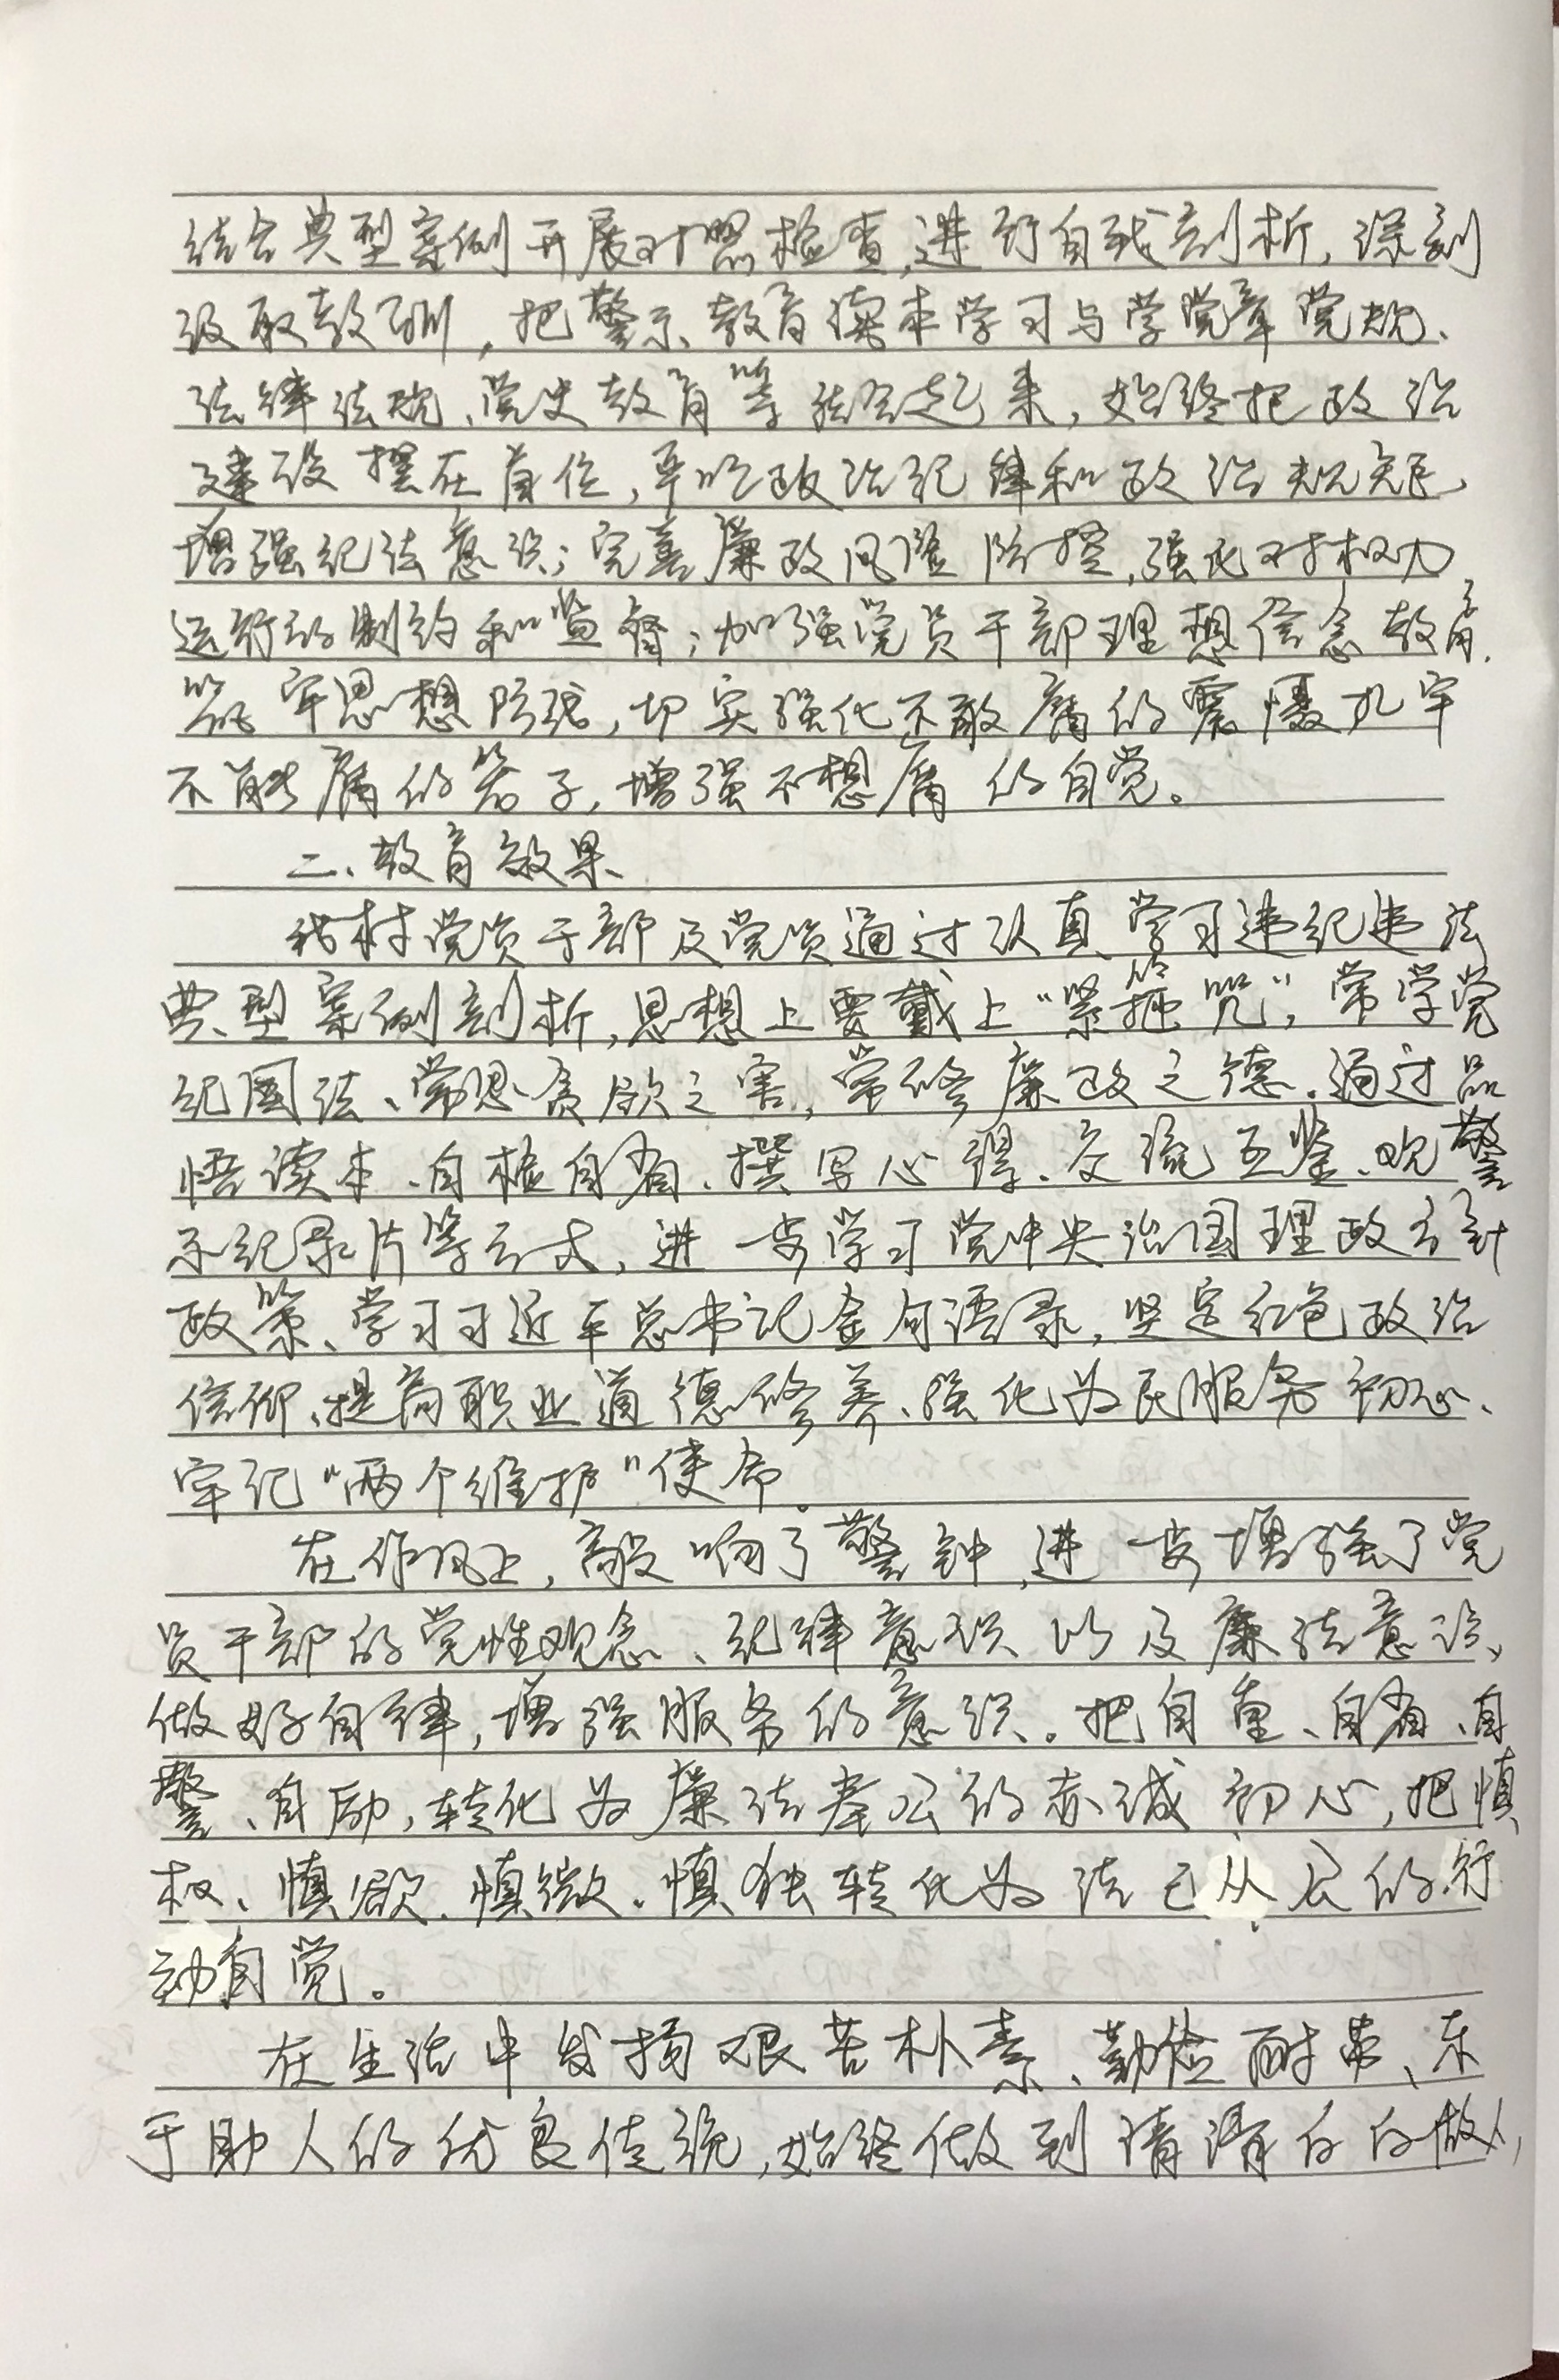 结合典型案例开展对照检查,进行自我剖析,深刻
汲取教训,把警示教育读本学习与学党章党规、
法律法规、党史教育等结合起来,始终把政治
建设摆在首位,严明政治纪律和政治规矩,
增强纪法意识;完善廉政风险防控,强化对权力
运行的制约和监督;加强党员干部理想信念教育,
筑牢思想防线,切实强化不敢腐的震慑扎牢
不能腐的笼子,增强不想腐的自觉。
二、教育效果
我村党员干部及党员通过认真学习违纪违法
典型案例剖析,思想上要戴上“紧箍咒”,常学党
纪国法、常思贪欲之害,常修廉政之德。通过品
悟读本、自检自省、撰写心得、交流互鉴、观警
示纪录片等方式,进一步学习党中央治国理政方针
政策、学习习近平总书记金句语录,坚定红色政治
信仰、提高职业道德修养、强化为民服务初心、
牢记“两个维护”使命。
在作风上,敲响了警钟,进一步增强了党
员干部的党性观念、纪律意识以及廉洁意识,
做好自律,增强服务的意识。把自重、自省、自
警、自励,转化为廉洁奉公的赤诚初心,把慎
权、慎欲、慎微、慎独转化为洁己从公的行
动自觉。
在生活中发扬艰苦朴素、勤俭耐劳、乐
于助人的优良传统,始终做到清清白白做人,